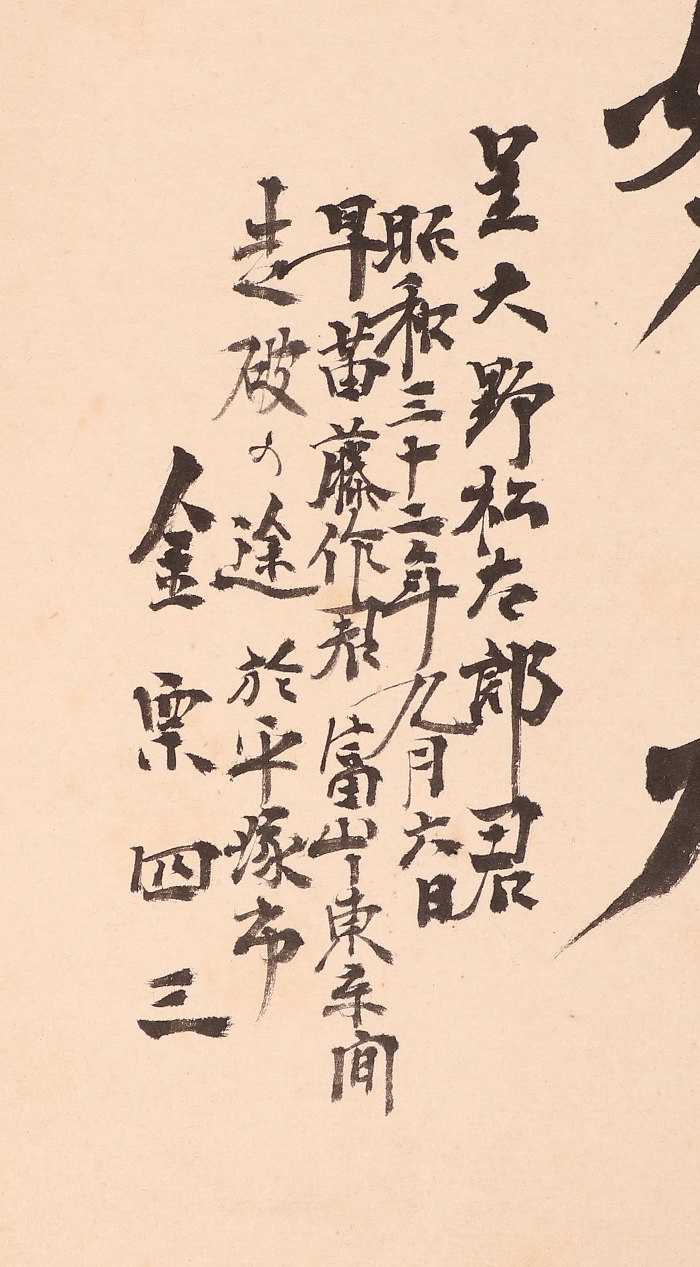 呈大野松太郎君
昭和三十二年九月六日
早苗藤作君富山東京間
走破の途於平塚市
金栗四三